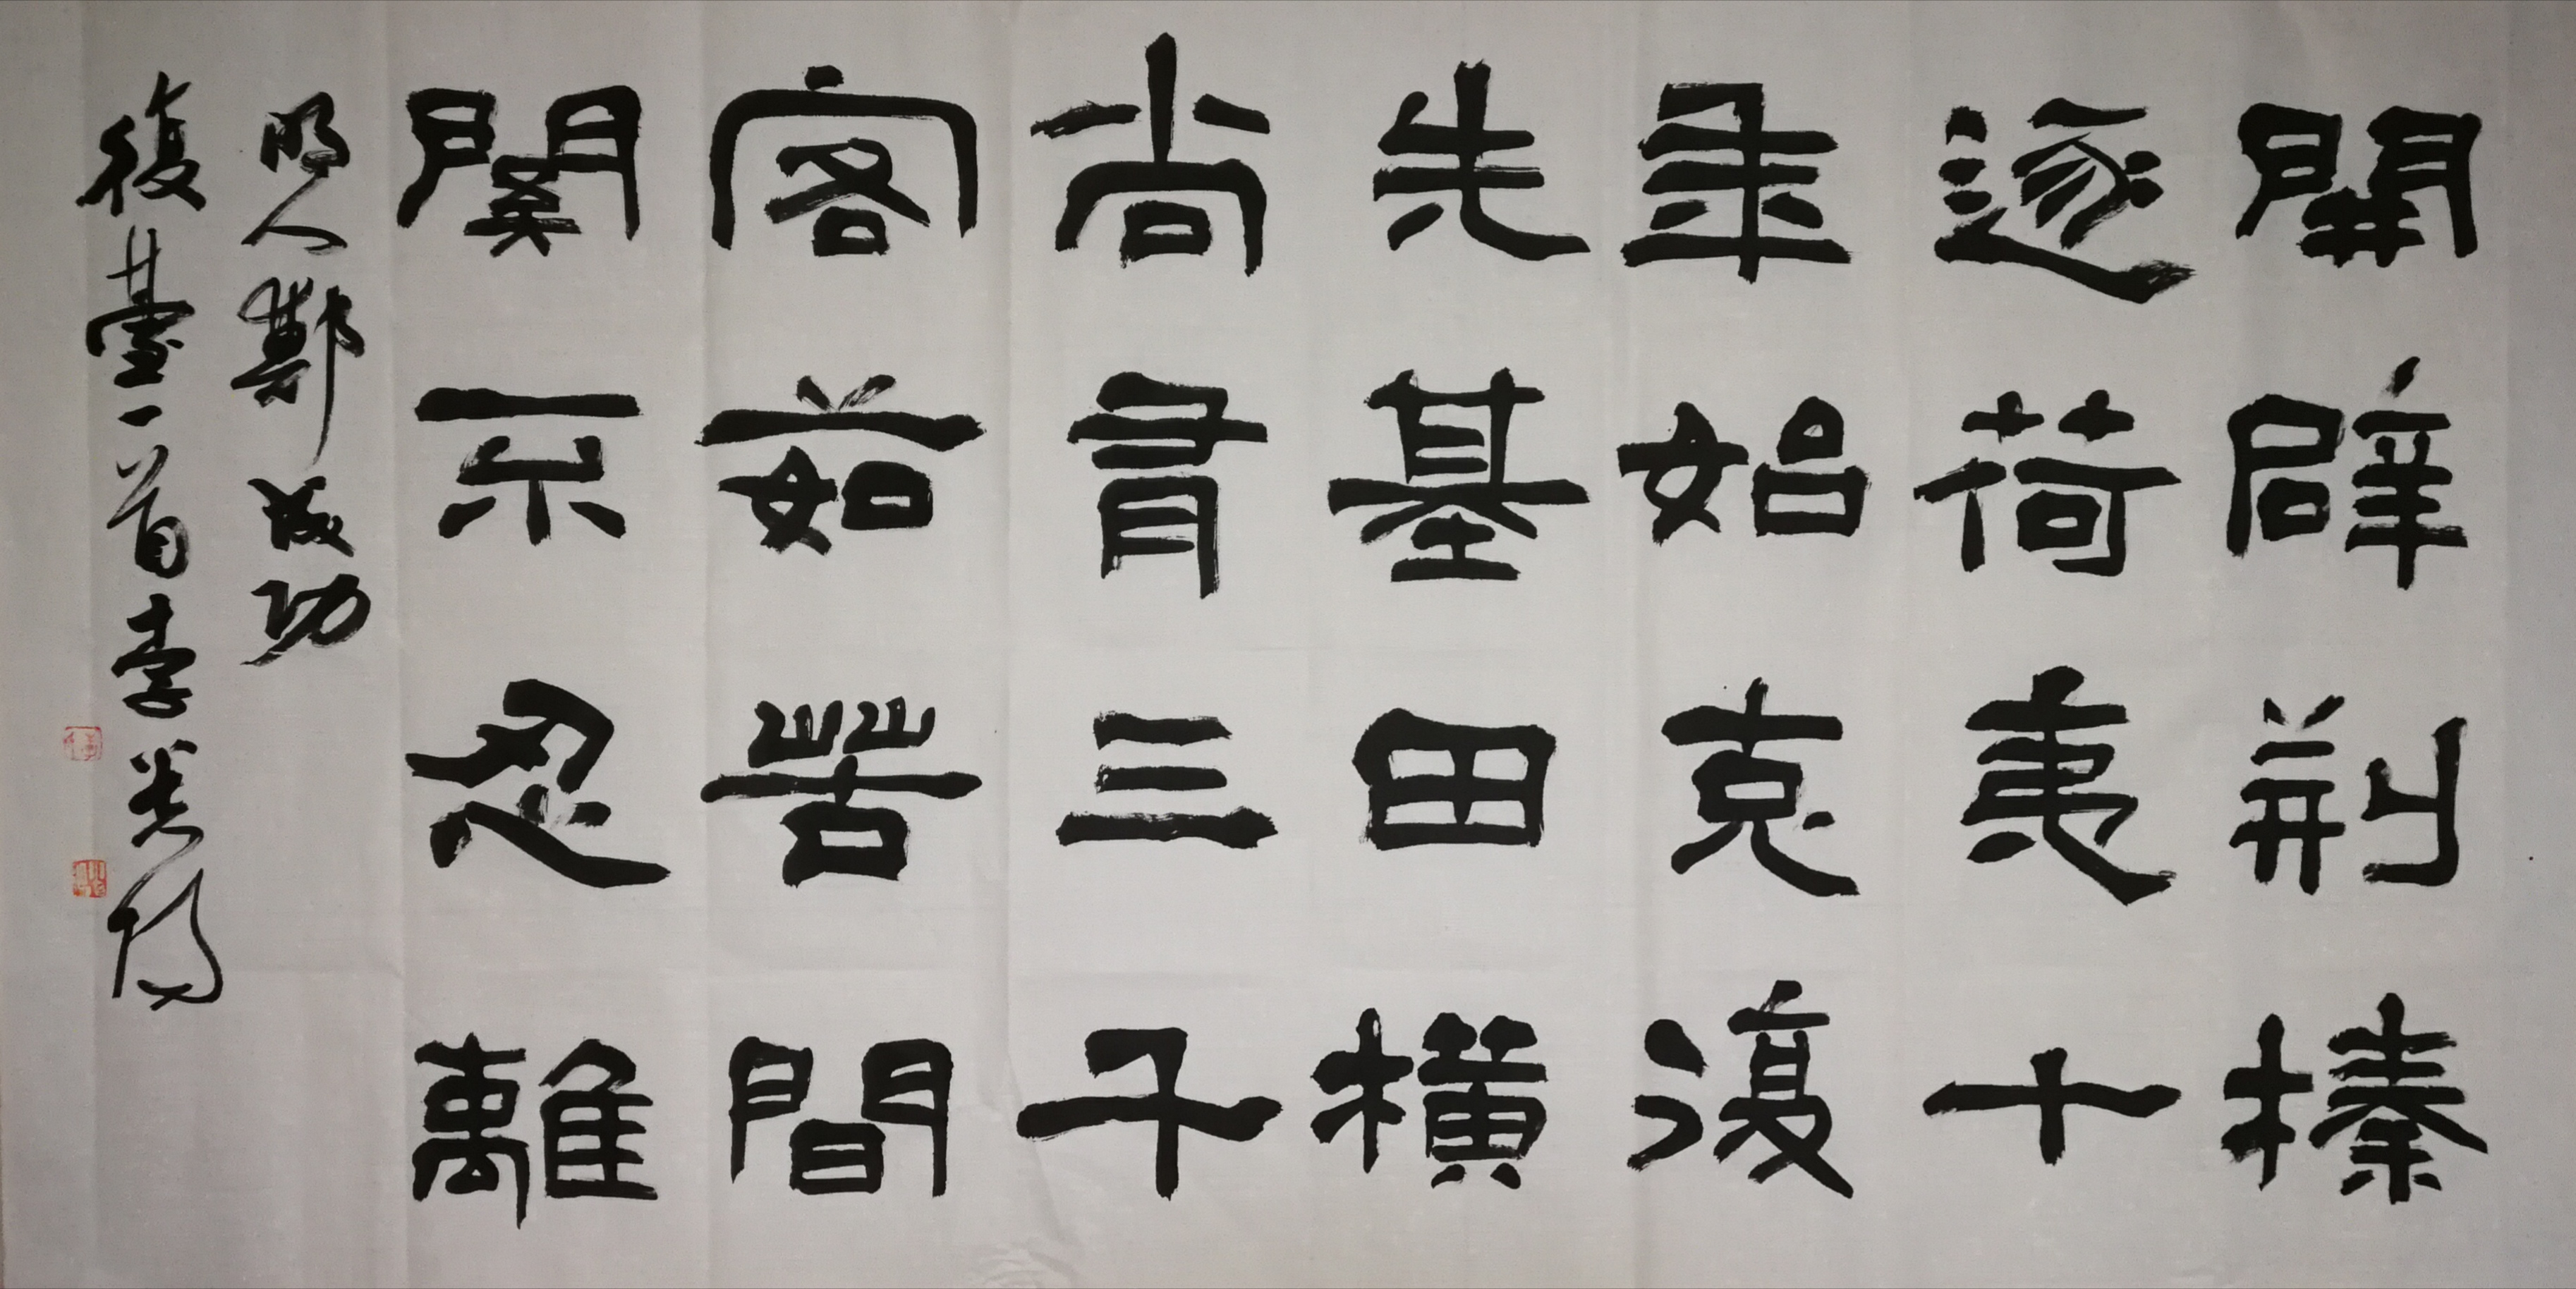 開闢荊榛
逐荷夷十
年始克復
先基田橫
尚有三千
客茹苦間
關不忍離
明人鄭成功
復臺一首李光